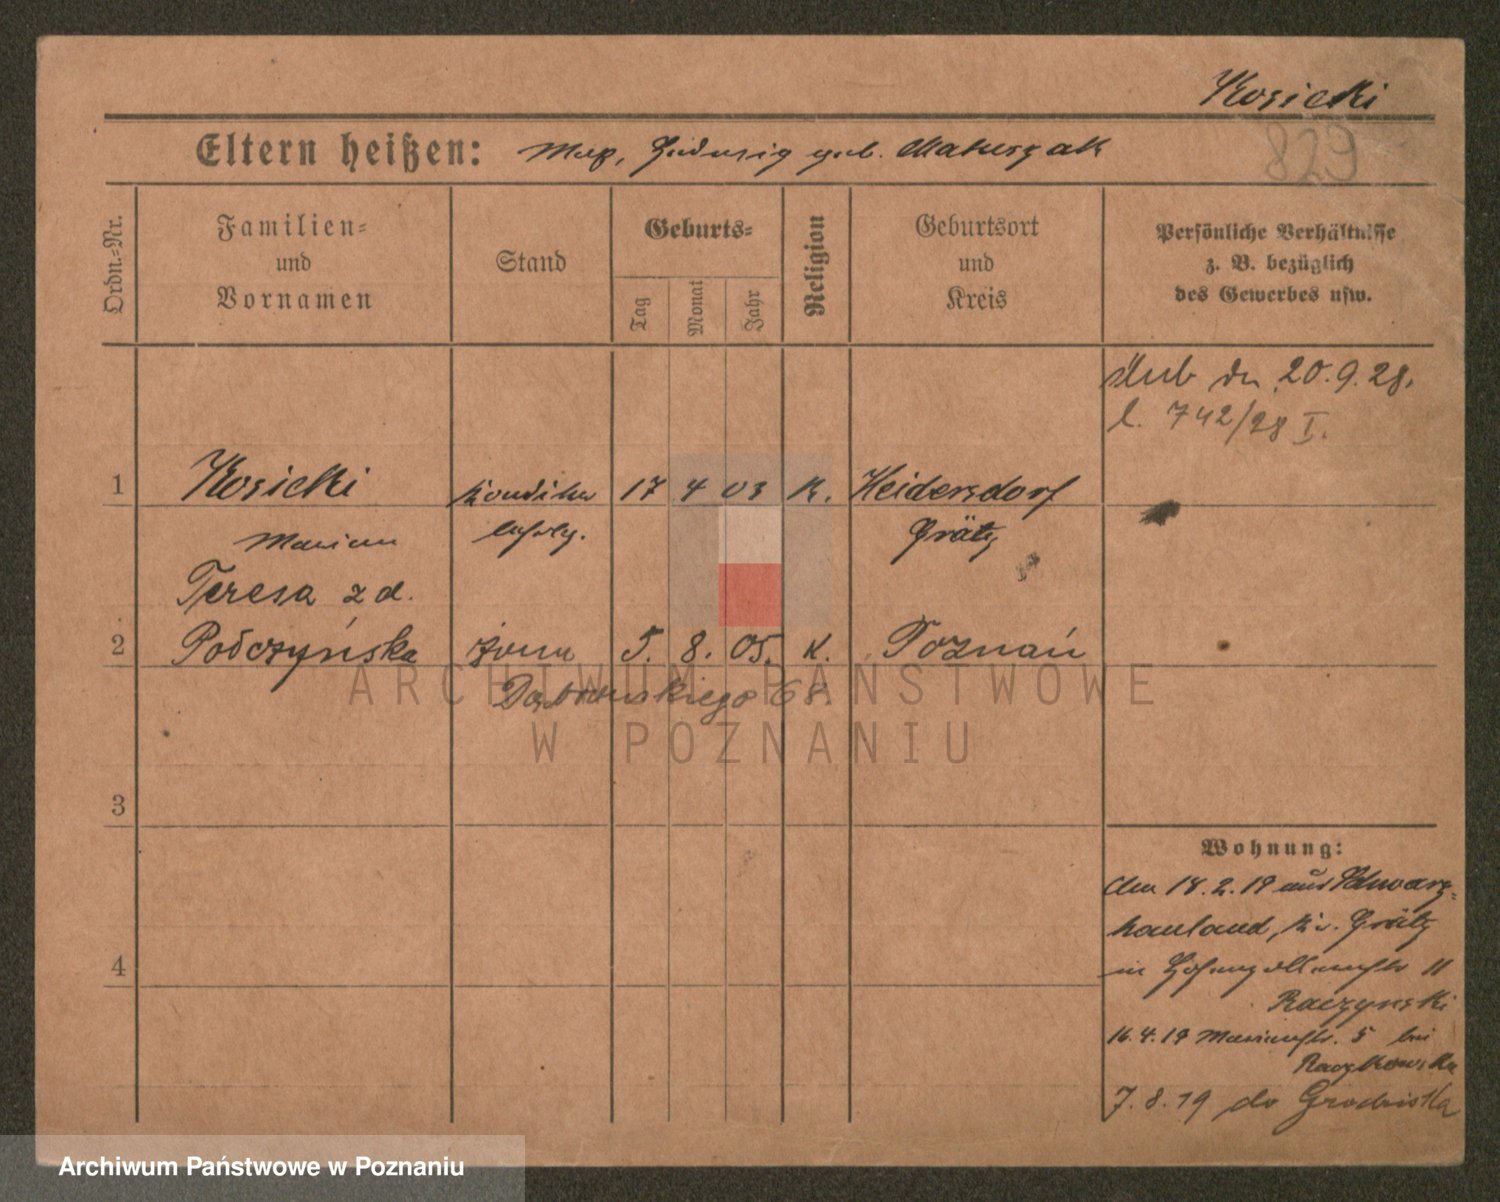 Kosicki
829
Eltern heißen: Max, Hedwig geb. Matuszak
Ordn.-Nr.
Familien-
und
Vornamen
Stand
Geburts-
Tag
Monat
Jahr
Religion
Geburtsort
und
Kreis
Persönliche Verhältnisse
z. B. bezüglich
des Gewerbes usw.
ślub dn 20.9.28.
l. 742/28 I.
1 Kosicki 17 4 03 K. Heidersdorf
Marian Grätz
Teresa z d.
2 żona 5. 8. 05. K. Poznań
Dąbrowskiego 68.
ARCHIWUM PAŃSTWOWE
W POZNANIU
3
4
Wohnung:
den 18.2.19 aus Schwarz-
hauland, Kr. Grätz
in Hohenzollernstr 11
Raczynski
16.4.19 5 bei
Raczkowska
7.8.19 do Grodziska
Archiwum Państwowe w Poznaniu